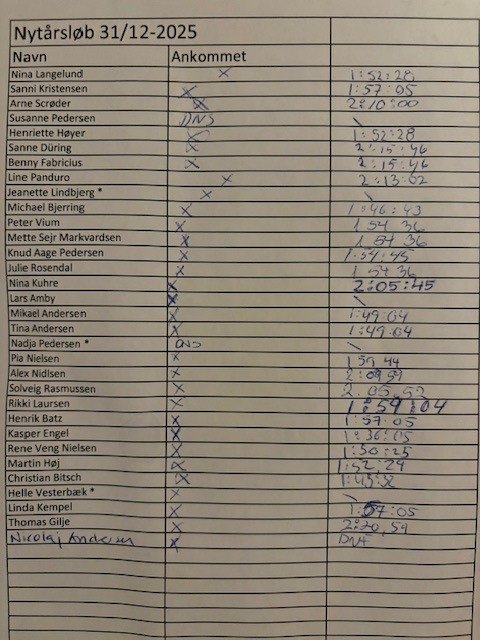 Nytårsløb 31/12-2025
Navn Ankommet
Nina Langelund X 1:52:28
Sanni Kristensen X 1:57:05
Arne Scrøder X 2:10:00
Susanne Pedersen DNS \
Henriette Høyer X 1:52:28
Sanne Düring X 2:15:46
Benny Fabricius X 2:15:46
Line Panduro X 2:13:02
Jeanette Lindbjerg * X \
Michael Bjerring X 1:46:43
Peter Vium X 1 54 36
Mette Sejr Markvardsen X 1 54 36
Knud Aage Pedersen X 1:54:45
Julie Rosendal X 1 54 36
Nina Kuhre X 2:05:45
Lars Amby X \
Mikael Andersen X 1:49:04
Tina Andersen X 1:49:04
Nadja Pedersen * DNS \
Pia Nielsen X 1 59 44
Alex Nidlsen X 2:09 59
Solveig Rasmussen X 2.05.52
Rikki Laursen X 1:59:04
Henrik Batz X 1:57:05
Kasper Engel X 1:36:05
Rene Veng Nielsen X 1:50:25
Martin Høj X 1:52:29
Christian Bitsch X 1:45:32
Helle Vesterbæk * X \
Linda Kempel X 1:57:05
Thomas Gilje X 2:20,59
Nicolaj Andersen X DNF